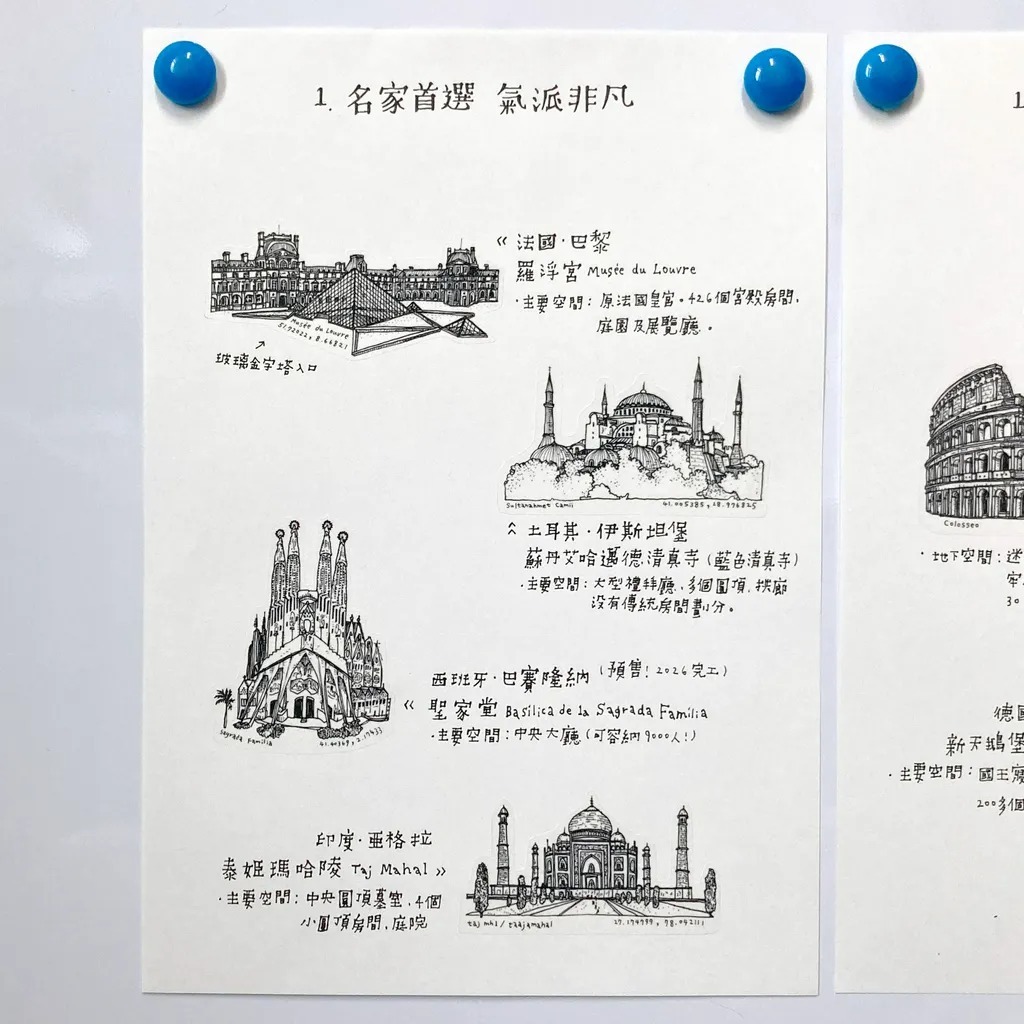 1. 名家首選 氣派非凡
« 法國·巴黎
羅浮宮 Musée du Louvre
·主要空間：原法國皇宮。426個宮殿房間、
庭園及展覽廳。
Musée du Louvre
玻璃金字塔入口
Sultanahmet Camii
土耳其·伊斯坦堡
蘇丹艾哈邁德清真寺(藍色清真寺)
·主要空間：大型禮拜廳、多個圓頂、拱廊
沒有傳統房間劃分。
西班牙·巴賽隆納 (預售！2026完工)
« 聖家堂 Basílica de la Sagrada Família
·主要空間：中央大廳(可容納9000人！)
Sagrada Família
41.40369, 2.17433
印度·亞格拉
泰姬瑪哈陵 Taj Mahal »
·主要空間：中央圓頂墓室、4個
小圓頂房間、庭院
taj mhl / taajamahal
27.174799, 78.042111
1
Colosseo
·地下空間：迷
30
德國
新天鵝堡
·主要空間：國王寢
200多個